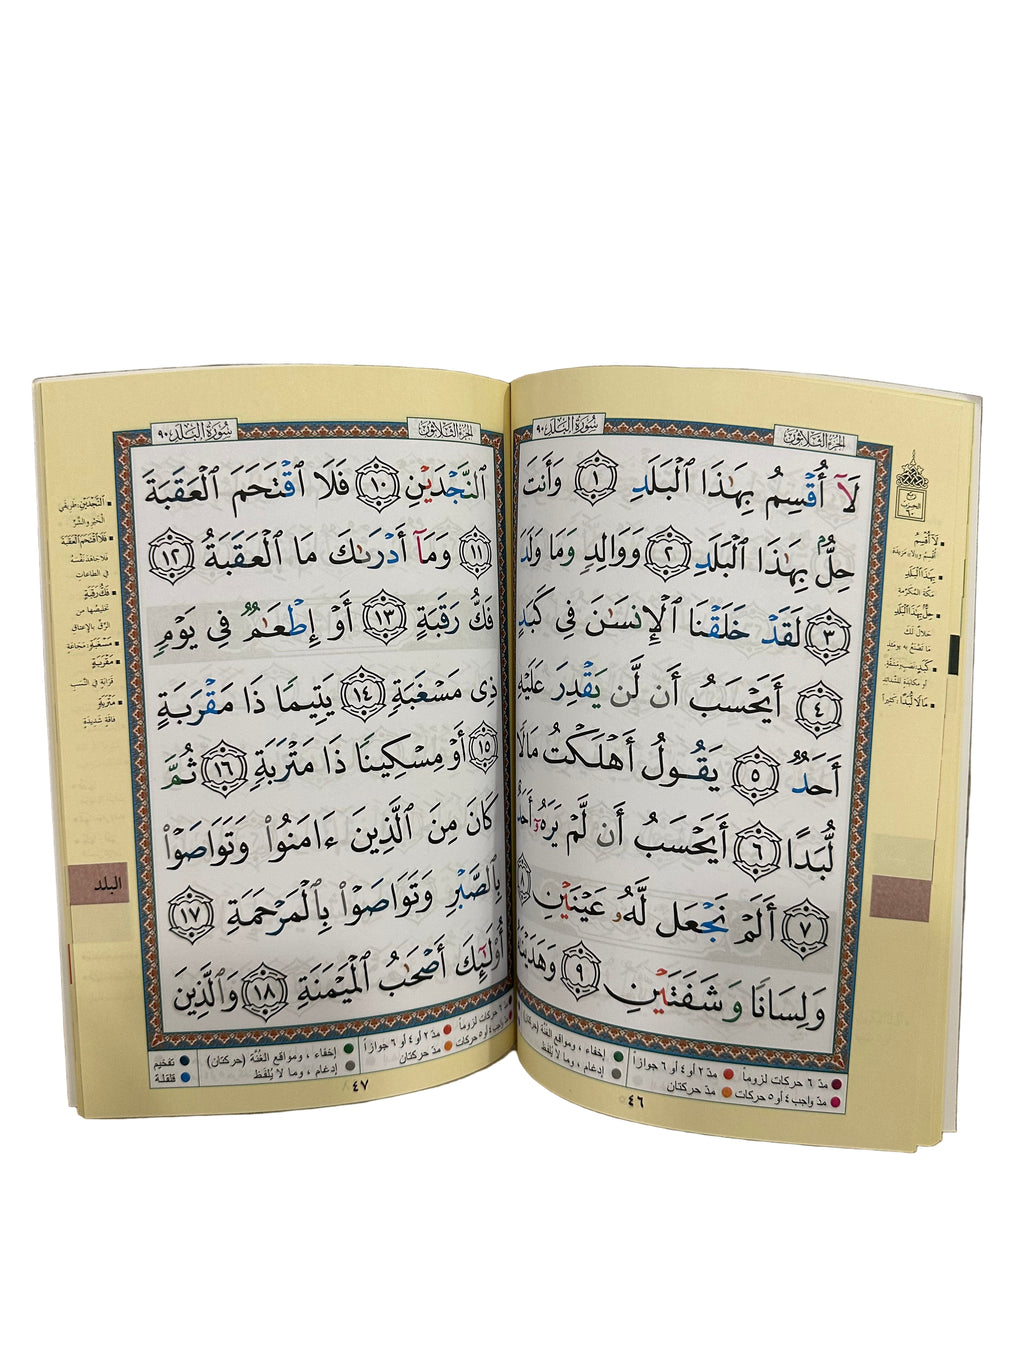 الجزء الثلاثون
سورة البلد ٩٠
لَآ أُقۡسِمُ بِهَٰذَا ٱلۡبَلَدِ ١ وَأَنتَ
حِلُّۢ بِهَٰذَا ٱلۡبَلَدِ ٢ وَوَالِدٖ وَمَا وَلَدَ
٣ لَقَدۡ خَلَقۡنَا ٱلۡإِنسَٰنَ فِي كَبَدٍ
٤ أَيَحۡسَبُ أَن لَّن يَقۡدِرَ عَلَيۡهِ
أَحَدٞ ٥ يَقُولُ أَهۡلَكۡتُ مَالٗا
لُّبَدًا ٦ أَيَحۡسَبُ أَن لَّمۡ يَرَهُۥٓ أَحَدٌ
٧ أَلَمۡ نَجۡعَل لَّهُۥ عَيۡنَيۡنِ ٨
وَلِسَانٗا وَشَفَتَيۡنِ ٩ وَهَدَيۡنَٰهُ
ربع
الحزب
٦٠
لَآ أُقۡسِمُ
أقسم و«لا» مزيدة
بِهَٰذَا ٱلۡبَلَدِ
مكّة المكرّمة
حِلُّۢ بِهَٰذَا ٱلۡبَلَدِ
حلال لك
ما تصنع به يومئذ
كَبَدٍ: نصب ومشقّة
أو مكابدة للشدائد
مَالٗا لُّبَدًا: كثيراً
مدّ ٦ حركات لزوماً مدّ ٢ أو ٤ أو ٦ جوازاً إخفاء ، ومواقع الغنّة (حركتان)
مدّ واجب ٤ أو ٥ حركات مدّ حركتان إدغام ، وما لا يُلفَظ
٤٦
الجزء الثلاثون
سورة البلد ٩٠
ٱلنَّجۡدَيۡنِ ١٠ فَلَا ٱقۡتَحَمَ ٱلۡعَقَبَةَ
١١ وَمَآ أَدۡرَىٰكَ مَا ٱلۡعَقَبَةُ ١٢
فَكُّ رَقَبَةٍ ١٣ أَوۡ إِطۡعَٰمٞ فِي يَوۡمٖ
ذِي مَسۡغَبَةٖ ١٤ يَتِيمٗا ذَا مَقۡرَبَةٍ
١٥ أَوۡ مِسۡكِينٗا ذَا مَتۡرَبَةٖ ١٦ ثُمَّ
كَانَ مِنَ ٱلَّذِينَ ءَامَنُواْ وَتَوَاصَوۡاْ
بِٱلصَّبۡرِ وَتَوَاصَوۡاْ بِٱلۡمَرۡحَمَةِ ١٧
أُوْلَٰٓئِكَ أَصۡحَٰبُ ٱلۡمَيۡمَنَةِ ١٨ وَٱلَّذِينَ
ٱلنَّجۡدَيۡنِ: طريقي
الخير والشرّ
فَلَا ٱقۡتَحَمَ ٱلۡعَقَبَةَ
فلا جاهد نفسه
في الطاعات
فَكُّ رَقَبَةٍ
تخليصها من
الرّقّ بالإعتاق
مَسۡغَبَةٖ: مجاعة
مَقۡرَبَةٍ
قرابة في النّسب
مَتۡرَبَةٖ
فاقة شديدة
البلد
مدّ ٦ حركات لزوماً مدّ ٢ أو ٤ أو ٦ جوازاً إخفاء ، ومواقع الغنّة (حركتان) تفخيم
مدّ واجب ٤ أو ٥ حركات مدّ حركتان إدغام ، وما لا يُلفَظ قلقلة
٤٧